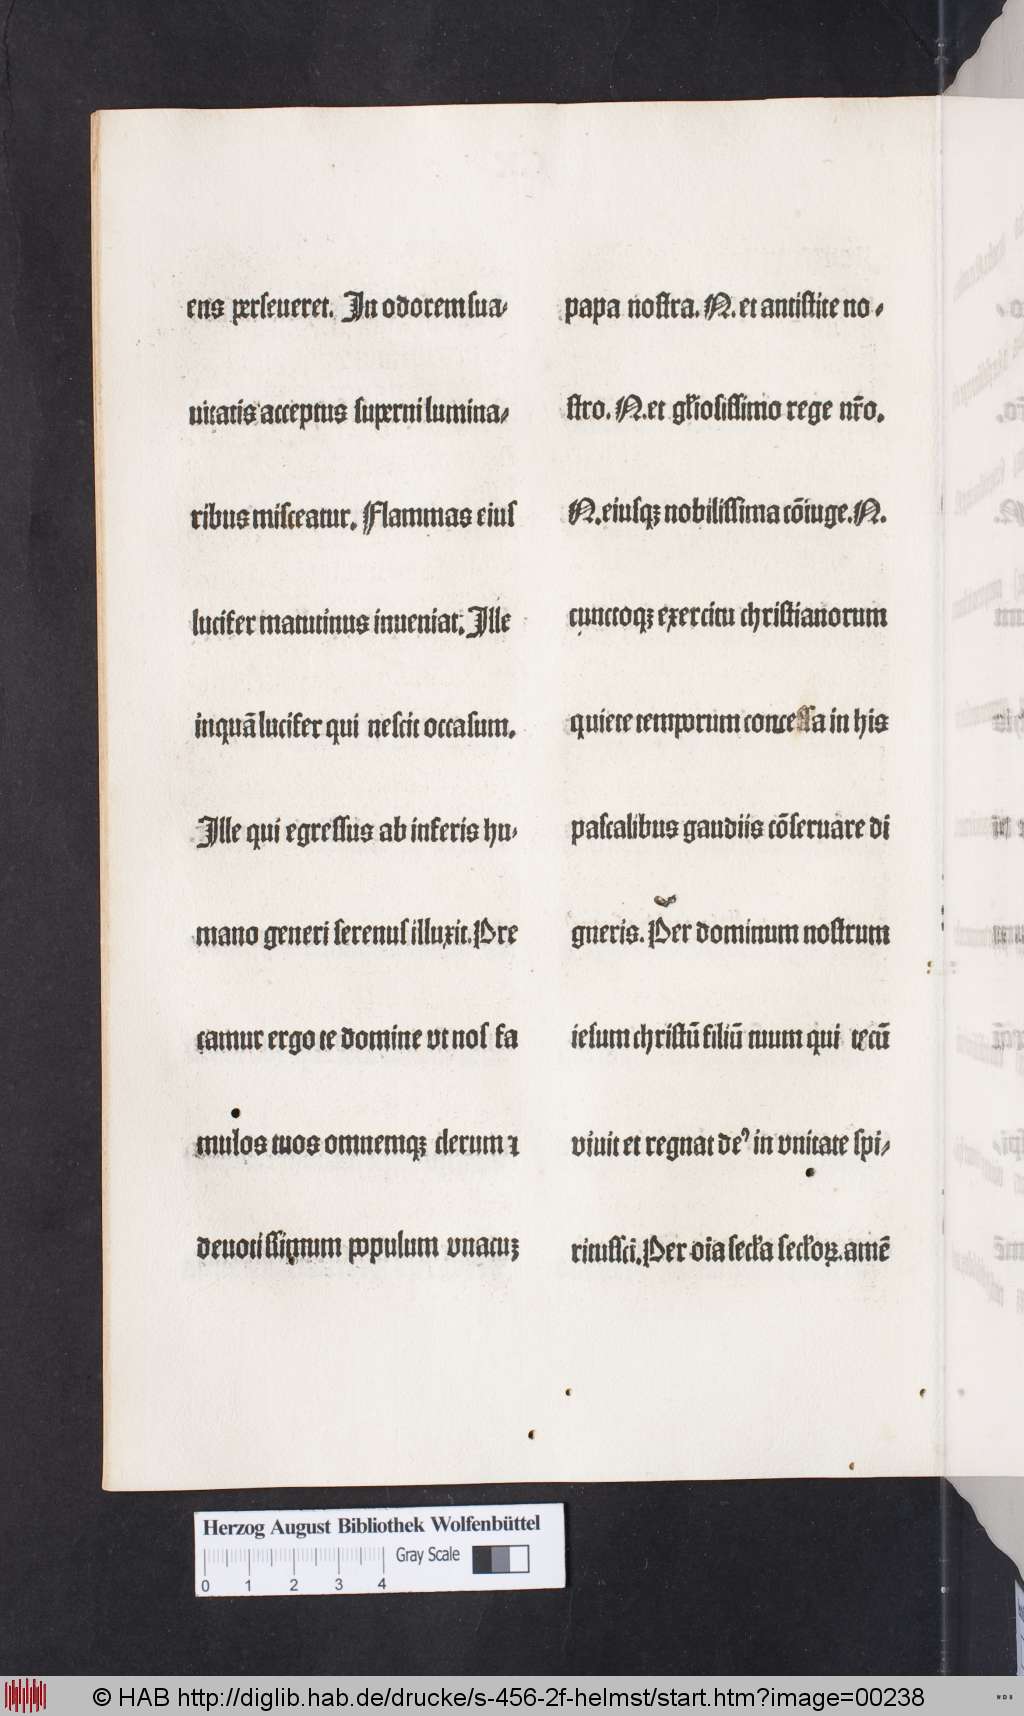 ens perseueret. In odorem sua-
uitatis acceptus superni lumina-
ribus misceatur. Flammas eius
lucifer matutinus inueniat. Ille
inquā lucifer qui nescit occasum.
Ille qui egressus ab inferis hu-
mano generi serenus illuxit. Pre
camur ergo te domine vt nos fa
mulos tuos omnemqꝫ clerum ⁊
deuotissimum populum vnacuꝫ
papa nostra. N. et antistite no-
stro. N. et gl'iosissimo rege nr̄o.
N. eiusqꝫ nobilissima cōiuge. N.
cunctoqꝫ exercitu christianorum
quiete temporum concessa in his
pascalibus gaudiis cōseruare di
gneris. Per dominum nostrum
iesum christū filiū tuum qui tecū
viuit et regnat deꝰ in vnitate spi-
ritussc̄i. Per oīa secl'a secl'oꝝ. amē
Herzog August Bibliothek Wolfenbüttel
Gray Scale
0 1 2 3 4
© HAB http://diglib.hab.de/drucke/s-456-2f-helmst/start.htm?image=00238